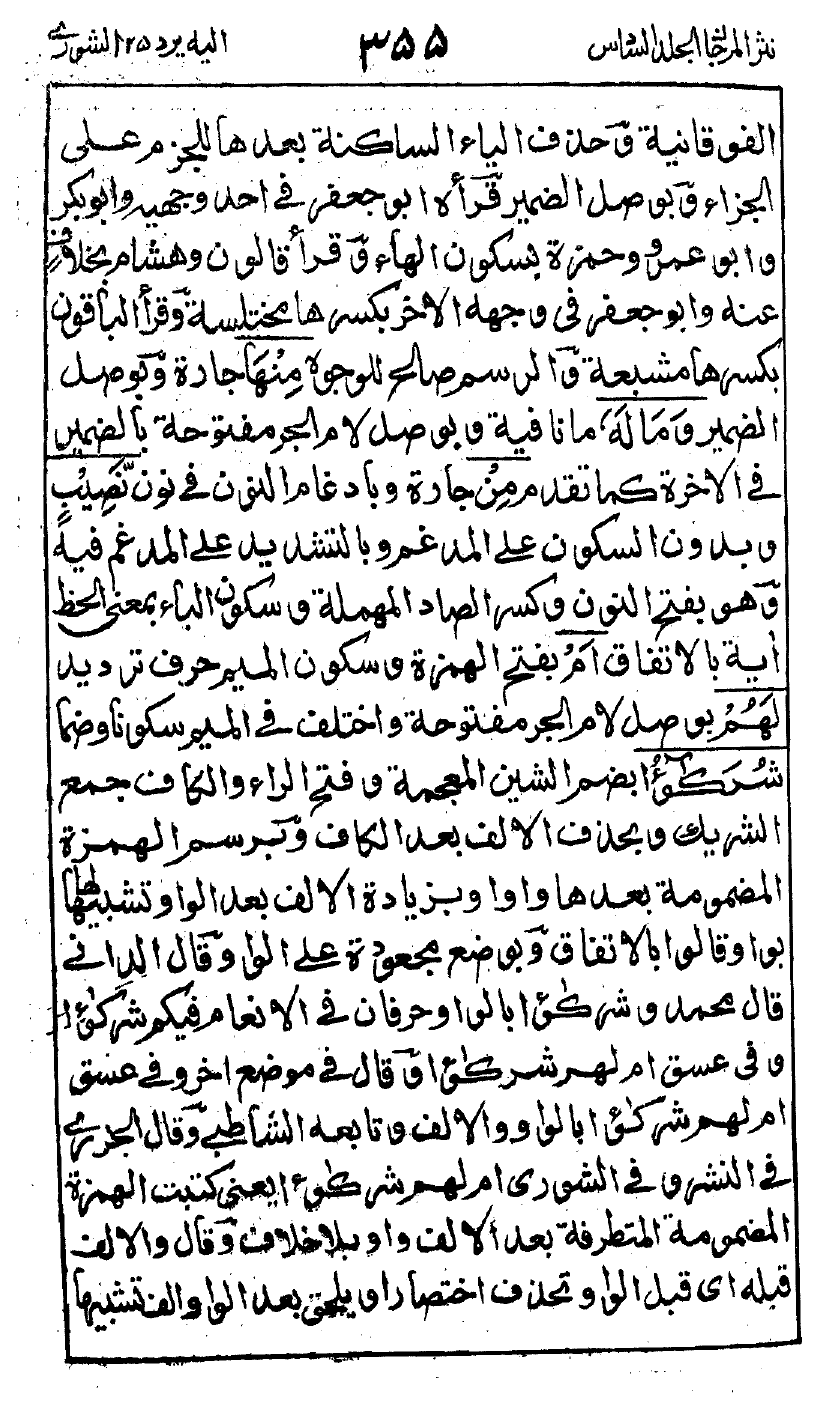 نثر المرجان المجلد السادس ٣٥٥ اليه يرد ٢٥ الشورى
الفوقانية و حذف الياء الساكنة بعدها للجزم على
الجزاء و بوصل الضمير قرأه ابو جعفر فى احد وجهيه وابوبكر
وابو عمرو وحمزة بسكون الهاء و قرأ قالون وهشام بخلاف
عنه وابو جعفر فى وجهه الاخر بكسرها مختلسة وقرأ الباقون
بكسرها مشبعة و الرسم صالح للوجوه مِنْهَا جارة و بوصل
الضمير وَمَا لَهٗ ما نافية و بوصل لام الجر مفتوحة بالضمير
فى الاخرة كما تقدم مِنْ جارة و بادغام النون فى نون نَّصِيْبٍ
و بدون السكون على المدغم و بالتشديد على المدغم فيه
و هو بفتح النون و كسر الصاد المهملة و سكون الياء بمعنى الحظ
أية بالاتفاق اَمْ بفتح الهمزة و سكون الميم حرف ترديد
لَهُمْ بوصل لام الجر مفتوحة و اختلف فى الميم سكونا وضما
شُرَكٰٓؤُا بضم الشين المعجمة و فتح الراء والكاف جمع
الشريك و بحذف الالف بعد الكاف و برسم الهمزة
المضمومة بعدها واوا و بزيادة الالف بعد الواو تشبيها لها
بواو قالوا بالاتفاق و بوضع مجعودة على الواو و قال الدانى
قال محمد و شركٰؤا بالواو حرفان فى الانعام فيكم شركٰؤا
و فى عسق ام لهم شركٰؤا و قال فى موضع اخر و فى عسق
ام لهم شركٰؤا بالواو والالف و تابعه الشاطبى و قال الجزرى
فى النشر و فى الشورى ام لهم شركٰوءا يعنى كتبت الهمزة
المضمومة المتطرفة بعد الالف واو بلاخلاف و قال والالف
قبله اى قبل الواو تحذف اختصارا و يلحق بعد الواو الف تشبيها